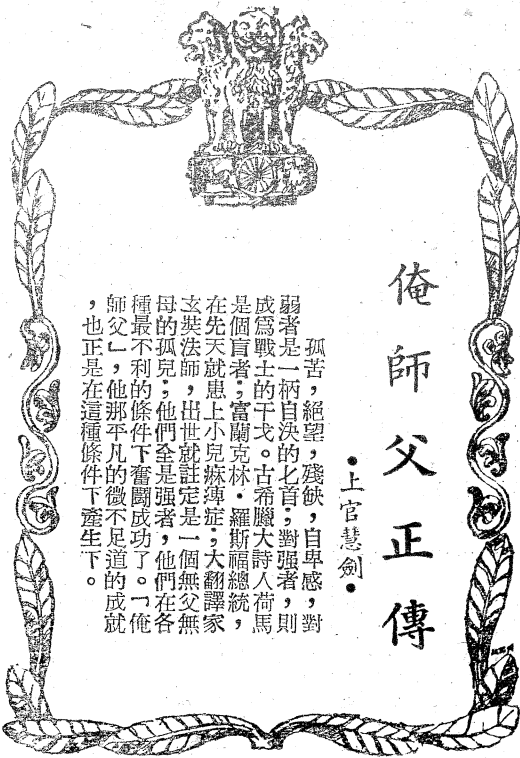 俺師父正傳
•上官慧劍•
孤苦，絕望，殘缺，自卑感，對
弱者是一柄自決的匕首；對强者，則
成爲戰士的干戈。古希臘大詩人荷馬
是個盲者；富蘭克林•羅斯福總統，
在先天就患上小兒痳痺症；大翻譯家
玄奘法師，出世就註定是一個無父無
母的孤兒；他們全是强者，他們在各
種最不利的條件下奮鬪成功了。「俺
師父」，他那平凡的微不足道的成就
，也正是在這種條件下產生下。